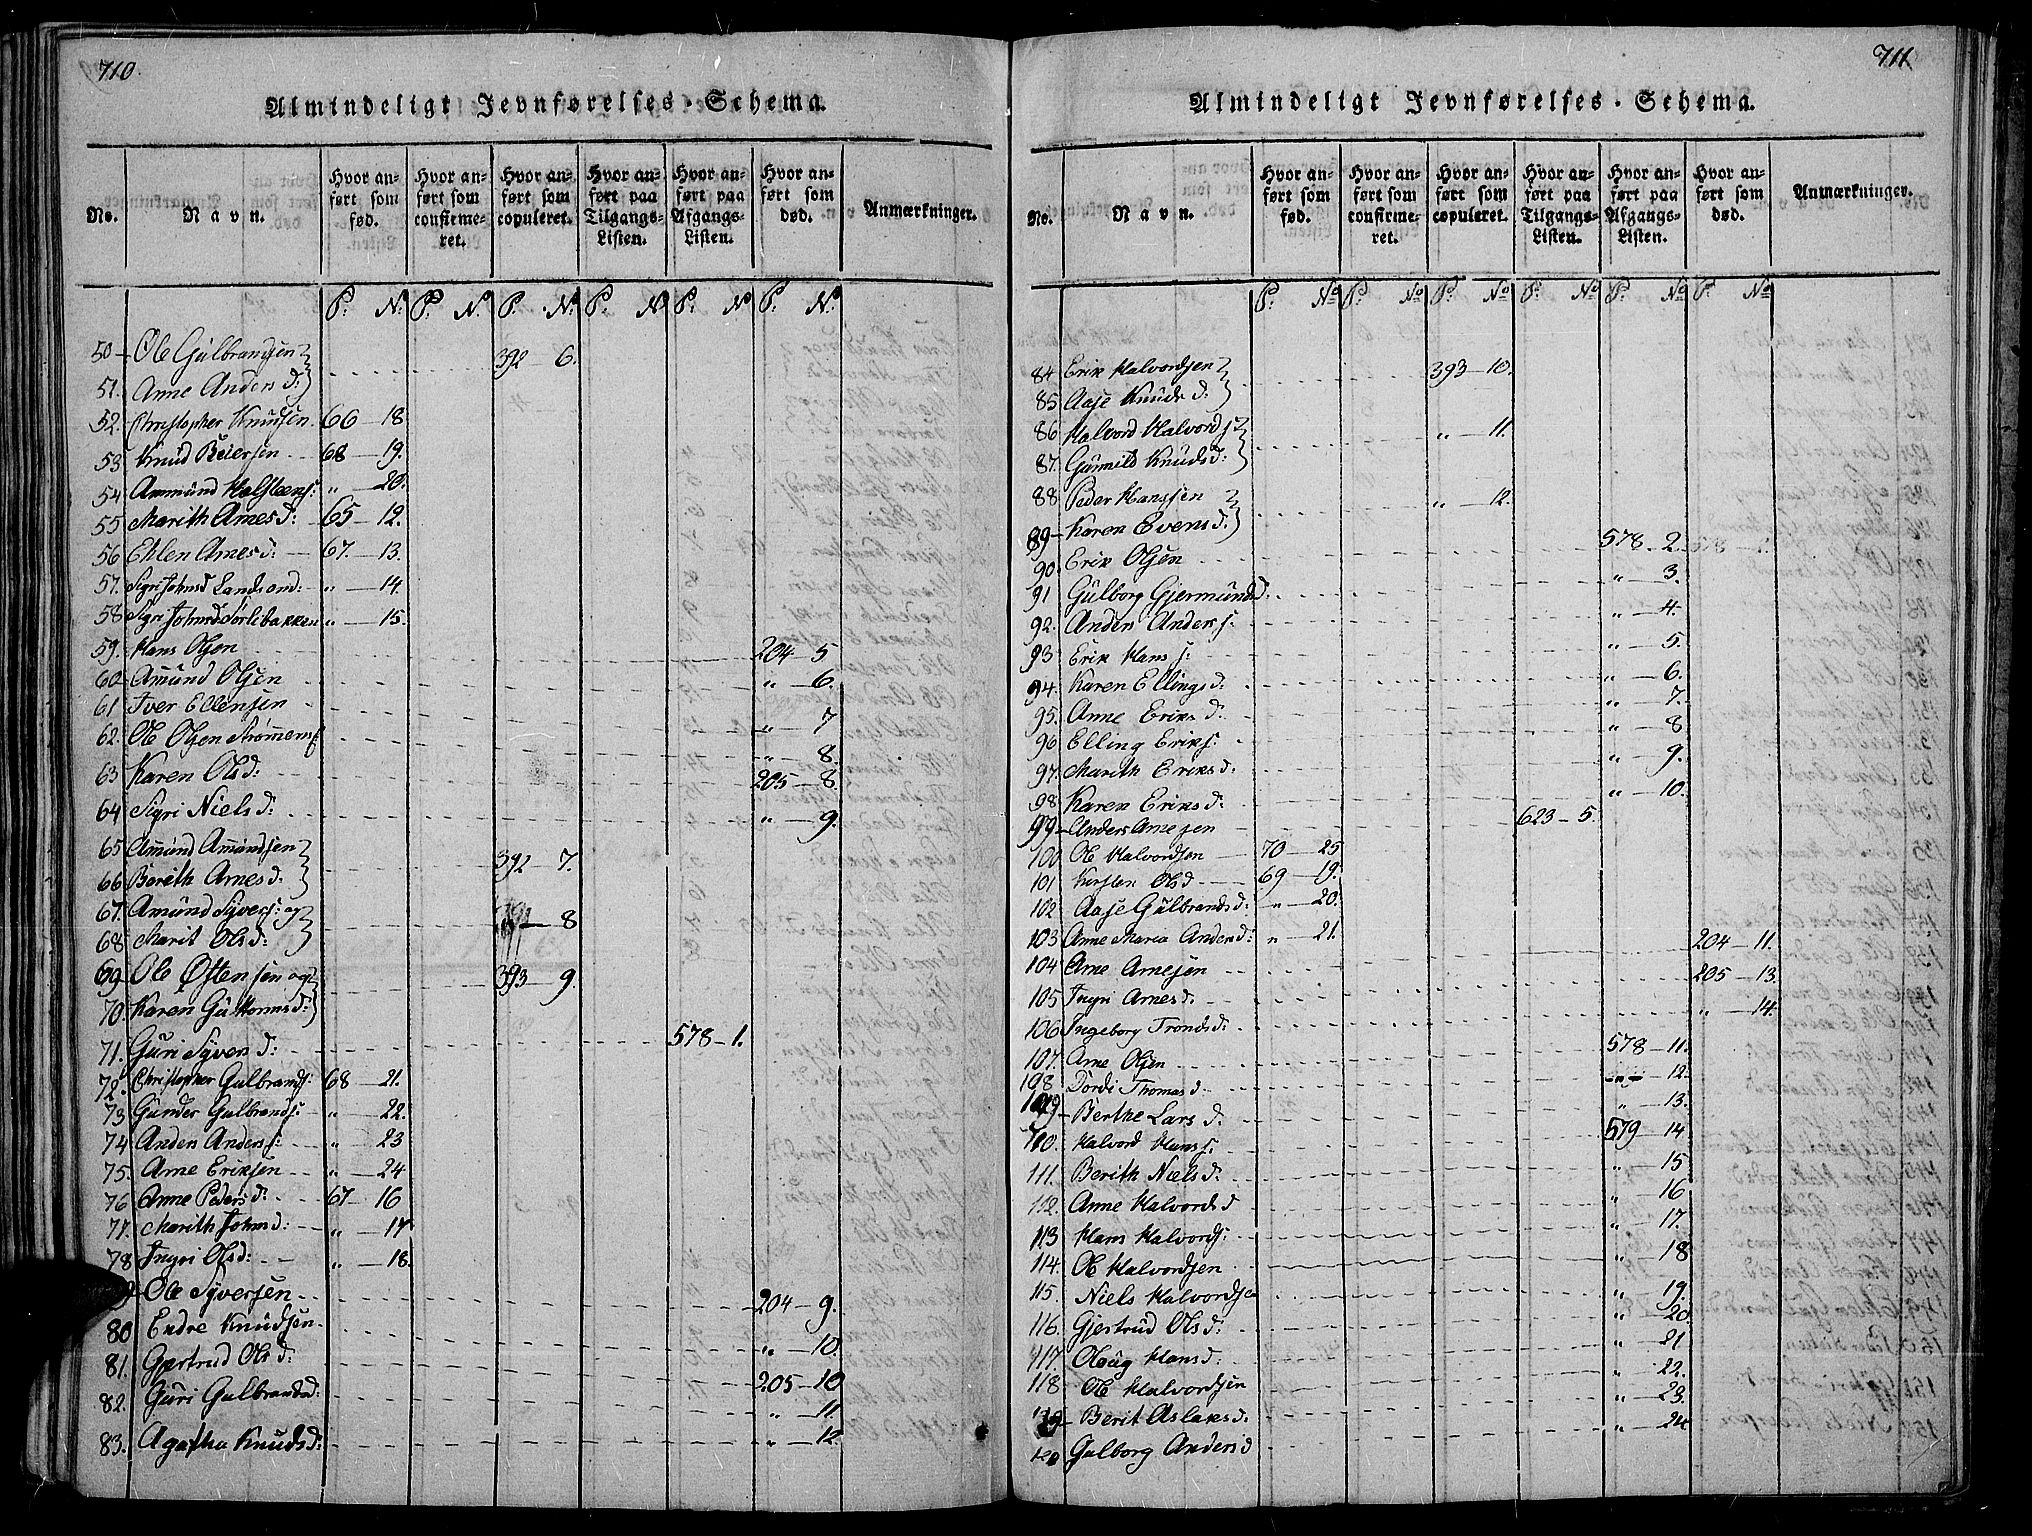 710.
Almindeligt Jevnførelses-Schema.
No.
Navn.
Hvor anført som fød.
Hvor anført som confirmeret.
Hvor anført som copuleret.
Hvor anført paa Tilgangs-Listen.
Hvor anført paa Afgangs-Listen.
Hvor anført som død.
Anmærkninger.
P. No. P. N. P. No. P. No P. No P. No.
50 Ole Gulbrandsen
51. Anne Anders d: 392 6.
52. Christopher Knudsen. 66 18
53 Knud Reiersen 68 19.
54 Ammund Halsteens: " 20.
55 Marith Arnes d: 65 12.
56 Ehlen Arnes d: 67. 13.
57. Sigri Johnsd Landsend: " 14.
58 Sigri Johnsd Sørlibakken " 15.
59. Hans Olsen 204 5
60 Amund Olsen " 6.
61 Iver Ellensen " 7
62. Ole Olsen " 8.
63 Karen Ols d: 205 8.
64 Sigri Niels d: " 9.
65 Amund Amundsen
66 Berith Arnes d: 392 7.
67. Amund Syvers: og
68 Marit Ols d: 8
69 Ole Østensen og 393 9.
70. Karen Guttorms d:
71. Guri Syvers d: 578 1.
72. Christopher Gulbrands: 68 21.
73 Gunder Gulbrands: " 22.
74 Anders Anders: " 23
75. Arne Eriksen " 24
76 Anne Peders d: 67 16
77. Marith Johns d: " 17
78 Ingri Ols d: " 18.
Ole Syversen 204 9.
80 Endre Knudsen. " 10.
81. Gjertrud Ols d: 205 10
82. Guri Gulbrandsd: " 11.
83. Agatha Knuds d: " 12
711.
Almindeligt Jevnførelses-Schema.
No.
Navn.
Hvor anført som fød.
Hvor anført som confirmeret.
Hvor anført som copuleret.
Hvor anført paa Tilgangs-Listen.
Hvor anført paa Afgangs-Listen.
Hvor anført som død.
Anmærkninger.
P. No P. No P. No P. No P. No P. No
84 Erik Halvordsen 393 10.
85 Aase Knuds d:
86 Halvord Halvords: " 11.
87. Gunnild Knuds d:
88 Peder Hanssen " 12.
89 Karen Evens d: 578 2.
90. Erik Olsen " 3.
91 Gulborg Gjermunds d: " 4.
92. Anders Anders: " 5.
93 Erik Hans s: " 6.
94. Karen Ellings d: " 7.
95. Anne Eriks d: " 8
96 Elling Eriks: " 9.
97. Marith Eriks d: " 10.
98 Karen Eriks d: 623 5.
99 Anders Arnesen
100 Ole Halvordsen 70 25
101 Kirsten Ols d 69 19.
102 Aase Gulbrands d: " 20.
103 Anne Maria Anders d: " 21. 204 11.
104 Arne Arnesen 205 13.
105 Ingri Arnes d: " 14.
106 Ingeborg Tronds d: 578 11.
107. Arne Olsen " 12.
108 Dordi Thomas d: " 13.
109 Berthe Lars d: 579 14
110. Halvord Hans s: " 15
111. Berith Niels d: " 16
112. Anne Halvords d " 17.
113 Hans Halvords: " 18
114. Ole Halvordsen " 19.
115. Niels Halvordsen " 20
116. Gjertrud Ols d: " 21
117. Oloug Hans d: " 22.
118 Ole Halvordsen " 23.
Berit Aslaks d: " 24
120 Gulborg Anders d